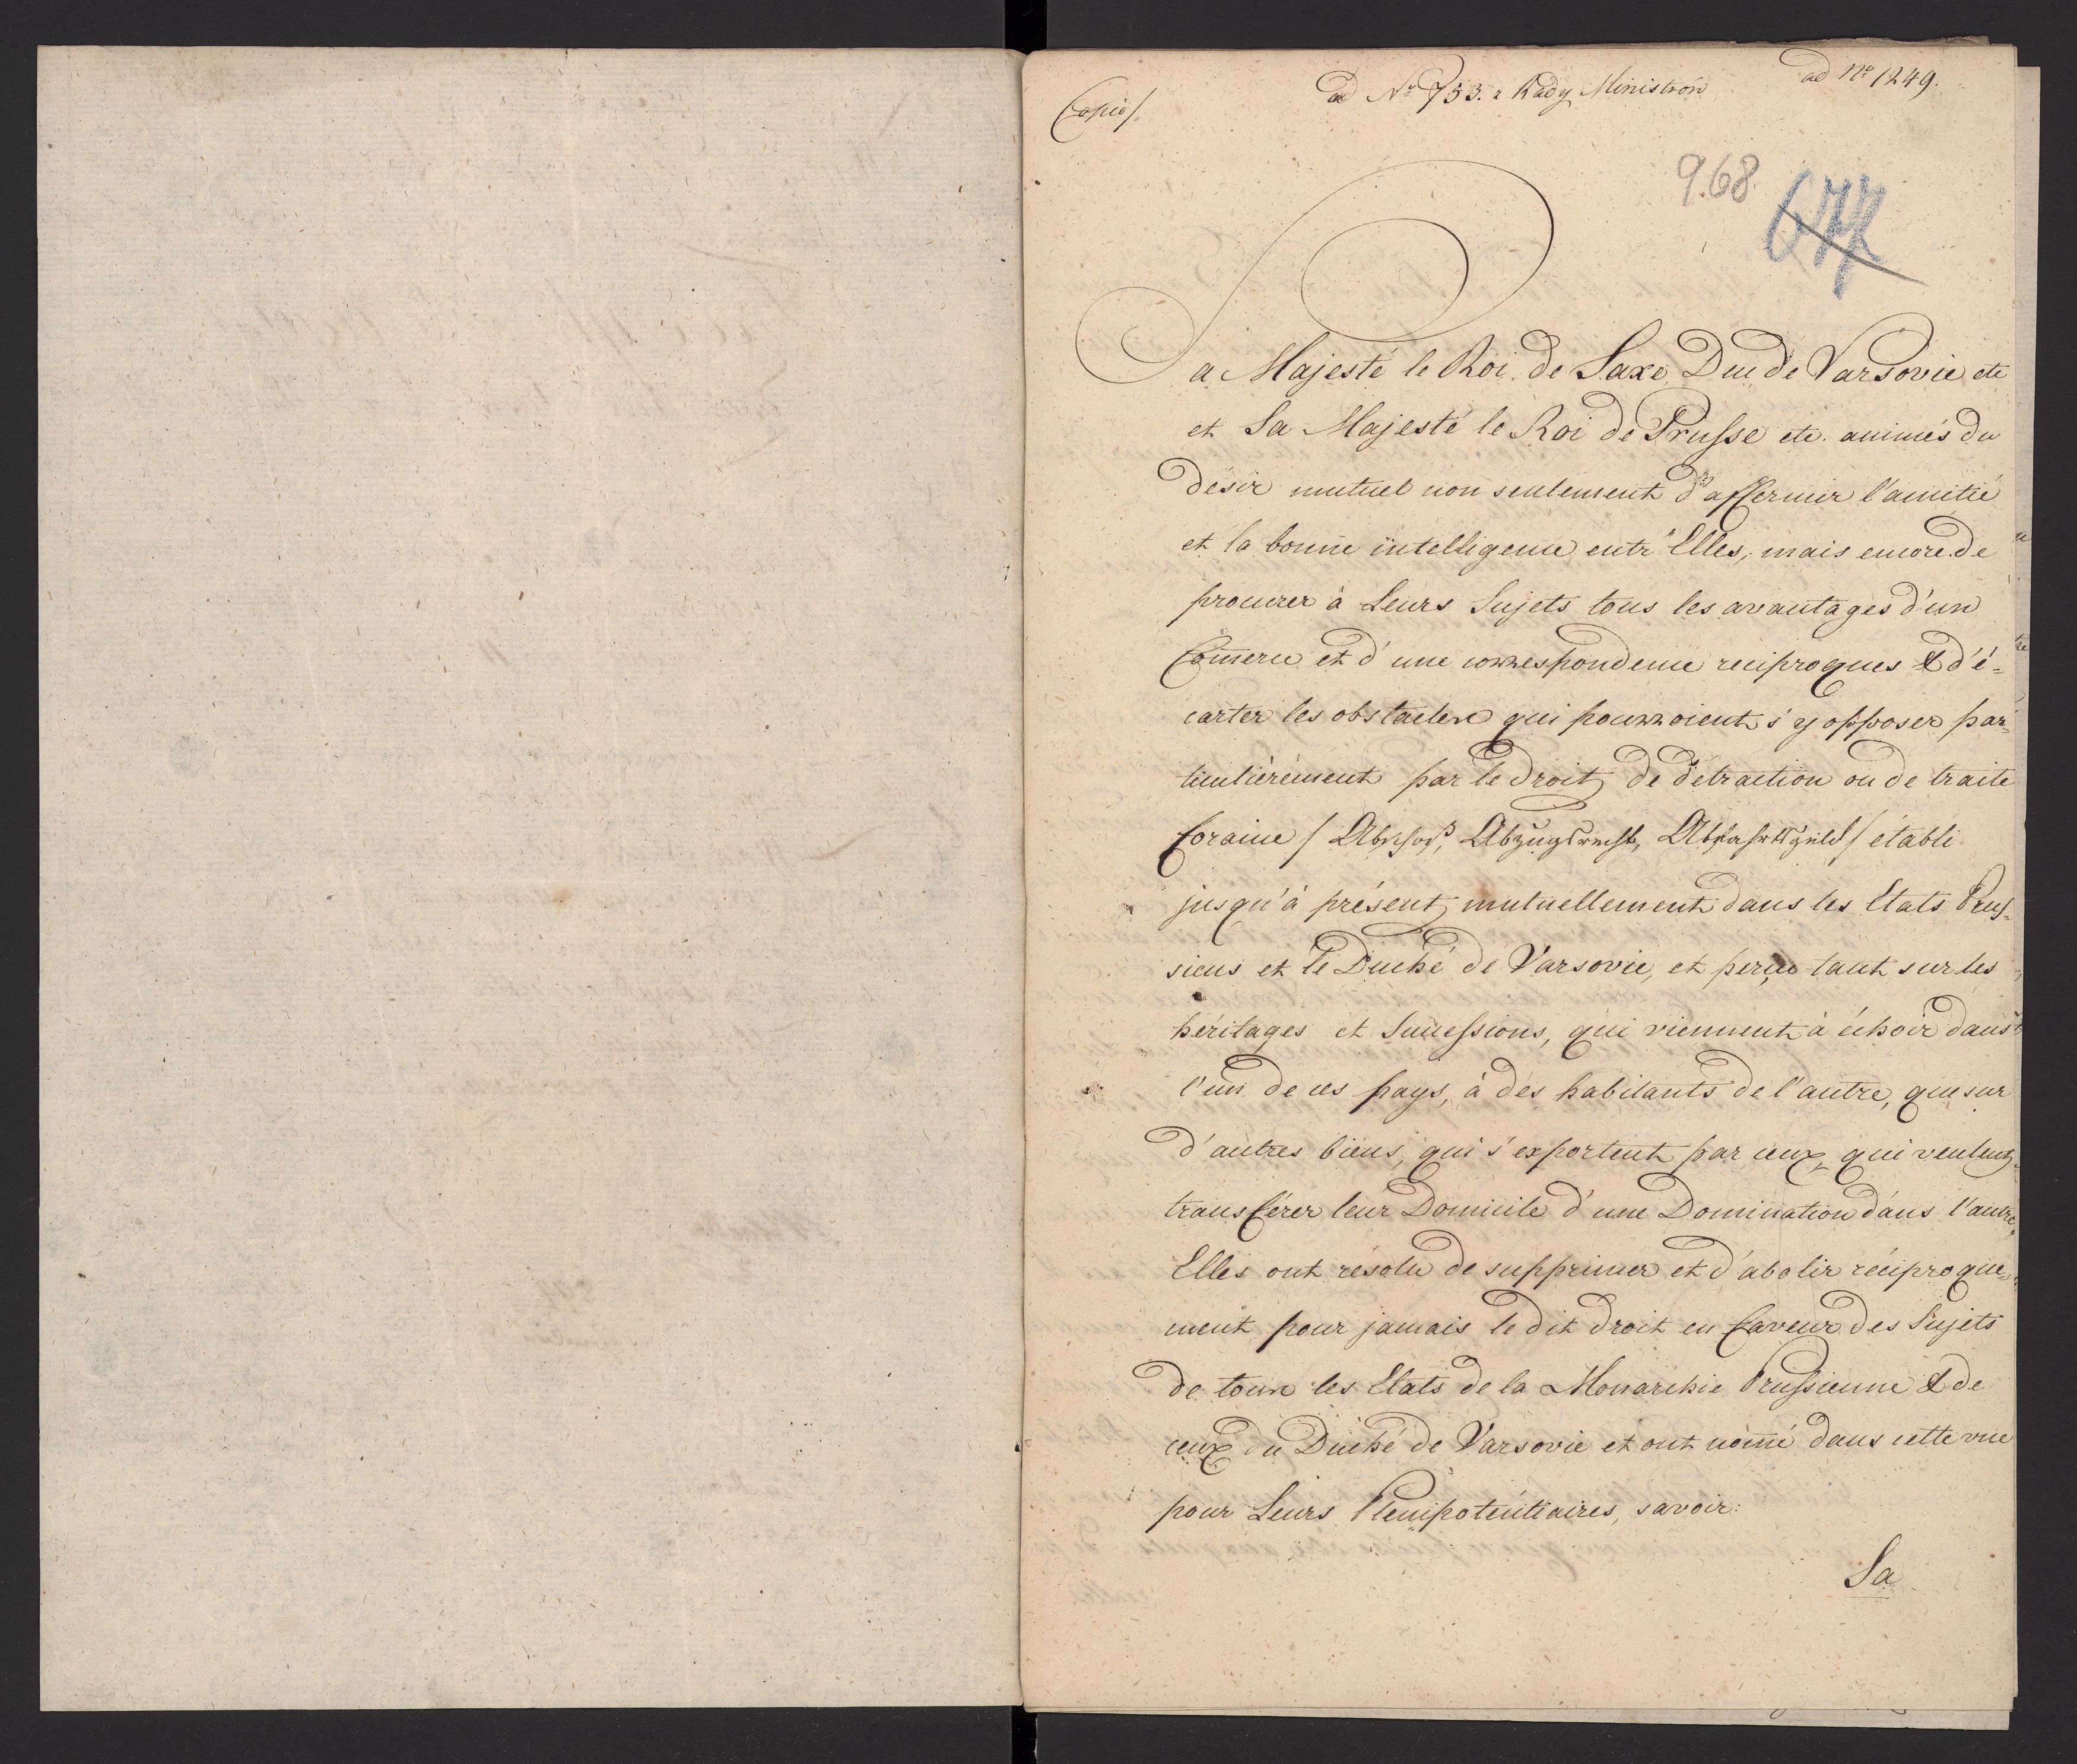 Copie/.
ad Nº 753. r Rady Ministrów
ad Nº 1249.
968
677
Sa Majesté le Roi de Saxe Duc de Varsovie etc
et Sa Majesté le Roi de Prusse etc. animés du
désir mutuel non seulement d'affermir l'amitié
et la bonne intelligence entr'Elles, mais encore de
procurer à Leurs Sujets tous les avantages d'un
Com̄erce et d'une correspondence reciproques & d'é=
carter les obstacles qui pourroient s'y opposer par=
ticulièrement par le Droit de détraction ou de traite
foraine / Abschoß, Abzugsrecht, Abfahrtsgeld / établi
jusqu'à présent mutuellement dans les Etats Prus=
siens et le Duché de Varsovie, et perçu tant sur les
héritages et Successions, qui viennent à échoir dans
l'un de ces pays, à des habitants de l'autre, que sur
d'autres biens, qui s'exportent par ceux, qui veulent
transférer leur Domicile d'une Domination dans l'autre,
Elles ont résolu de supprimer et d'abolir réciproque=
ment pour jamais le dit droit en faveur des Sujets
de tous les Etats de la Monarchie Prussienne & de
ceux du Duché de Varsovie et ont nom̄é dans cette vue
pour Leurs Plenipotentiaires, savoir:
Sa